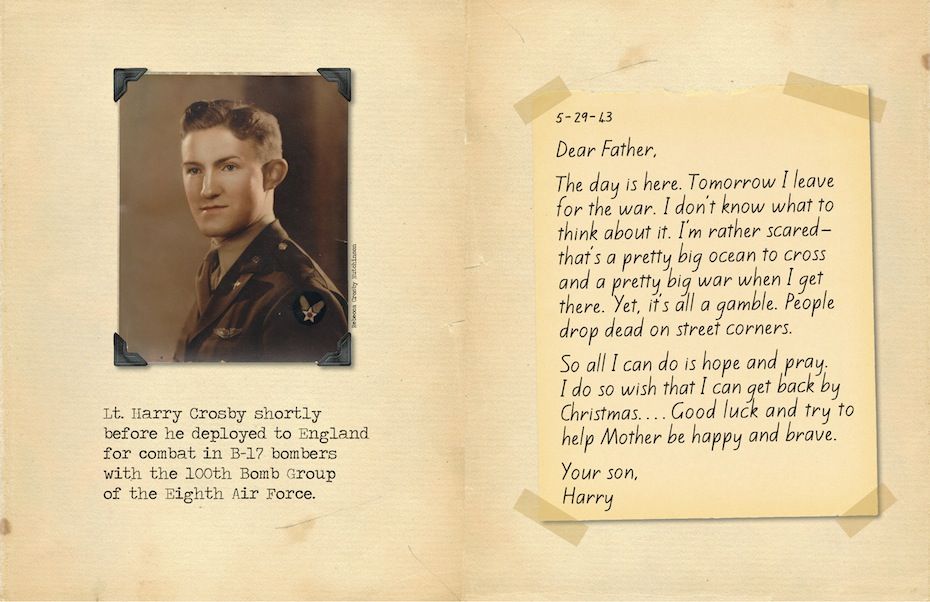 Rebecca Crosby Hutchinson
Lt. Harry Crosby shortly
before he deployed to England
for combat in B-17 bombers
with the 100th Bomb Group
of the Eighth Air Force.
5-29-43
Dear Father,
The day is here. Tomorrow I leave
for the war. I don't know what to
think about it. I'm rather scared—
that's a pretty big ocean to cross
and a pretty big war when I get
there. Yet, it's all a gamble. People
drop dead on street corners.
So all I can do is hope and pray.
I do so wish that I can get back by
Christmas.... Good luck and try to
help Mother be happy and brave.
Your son,
Harry